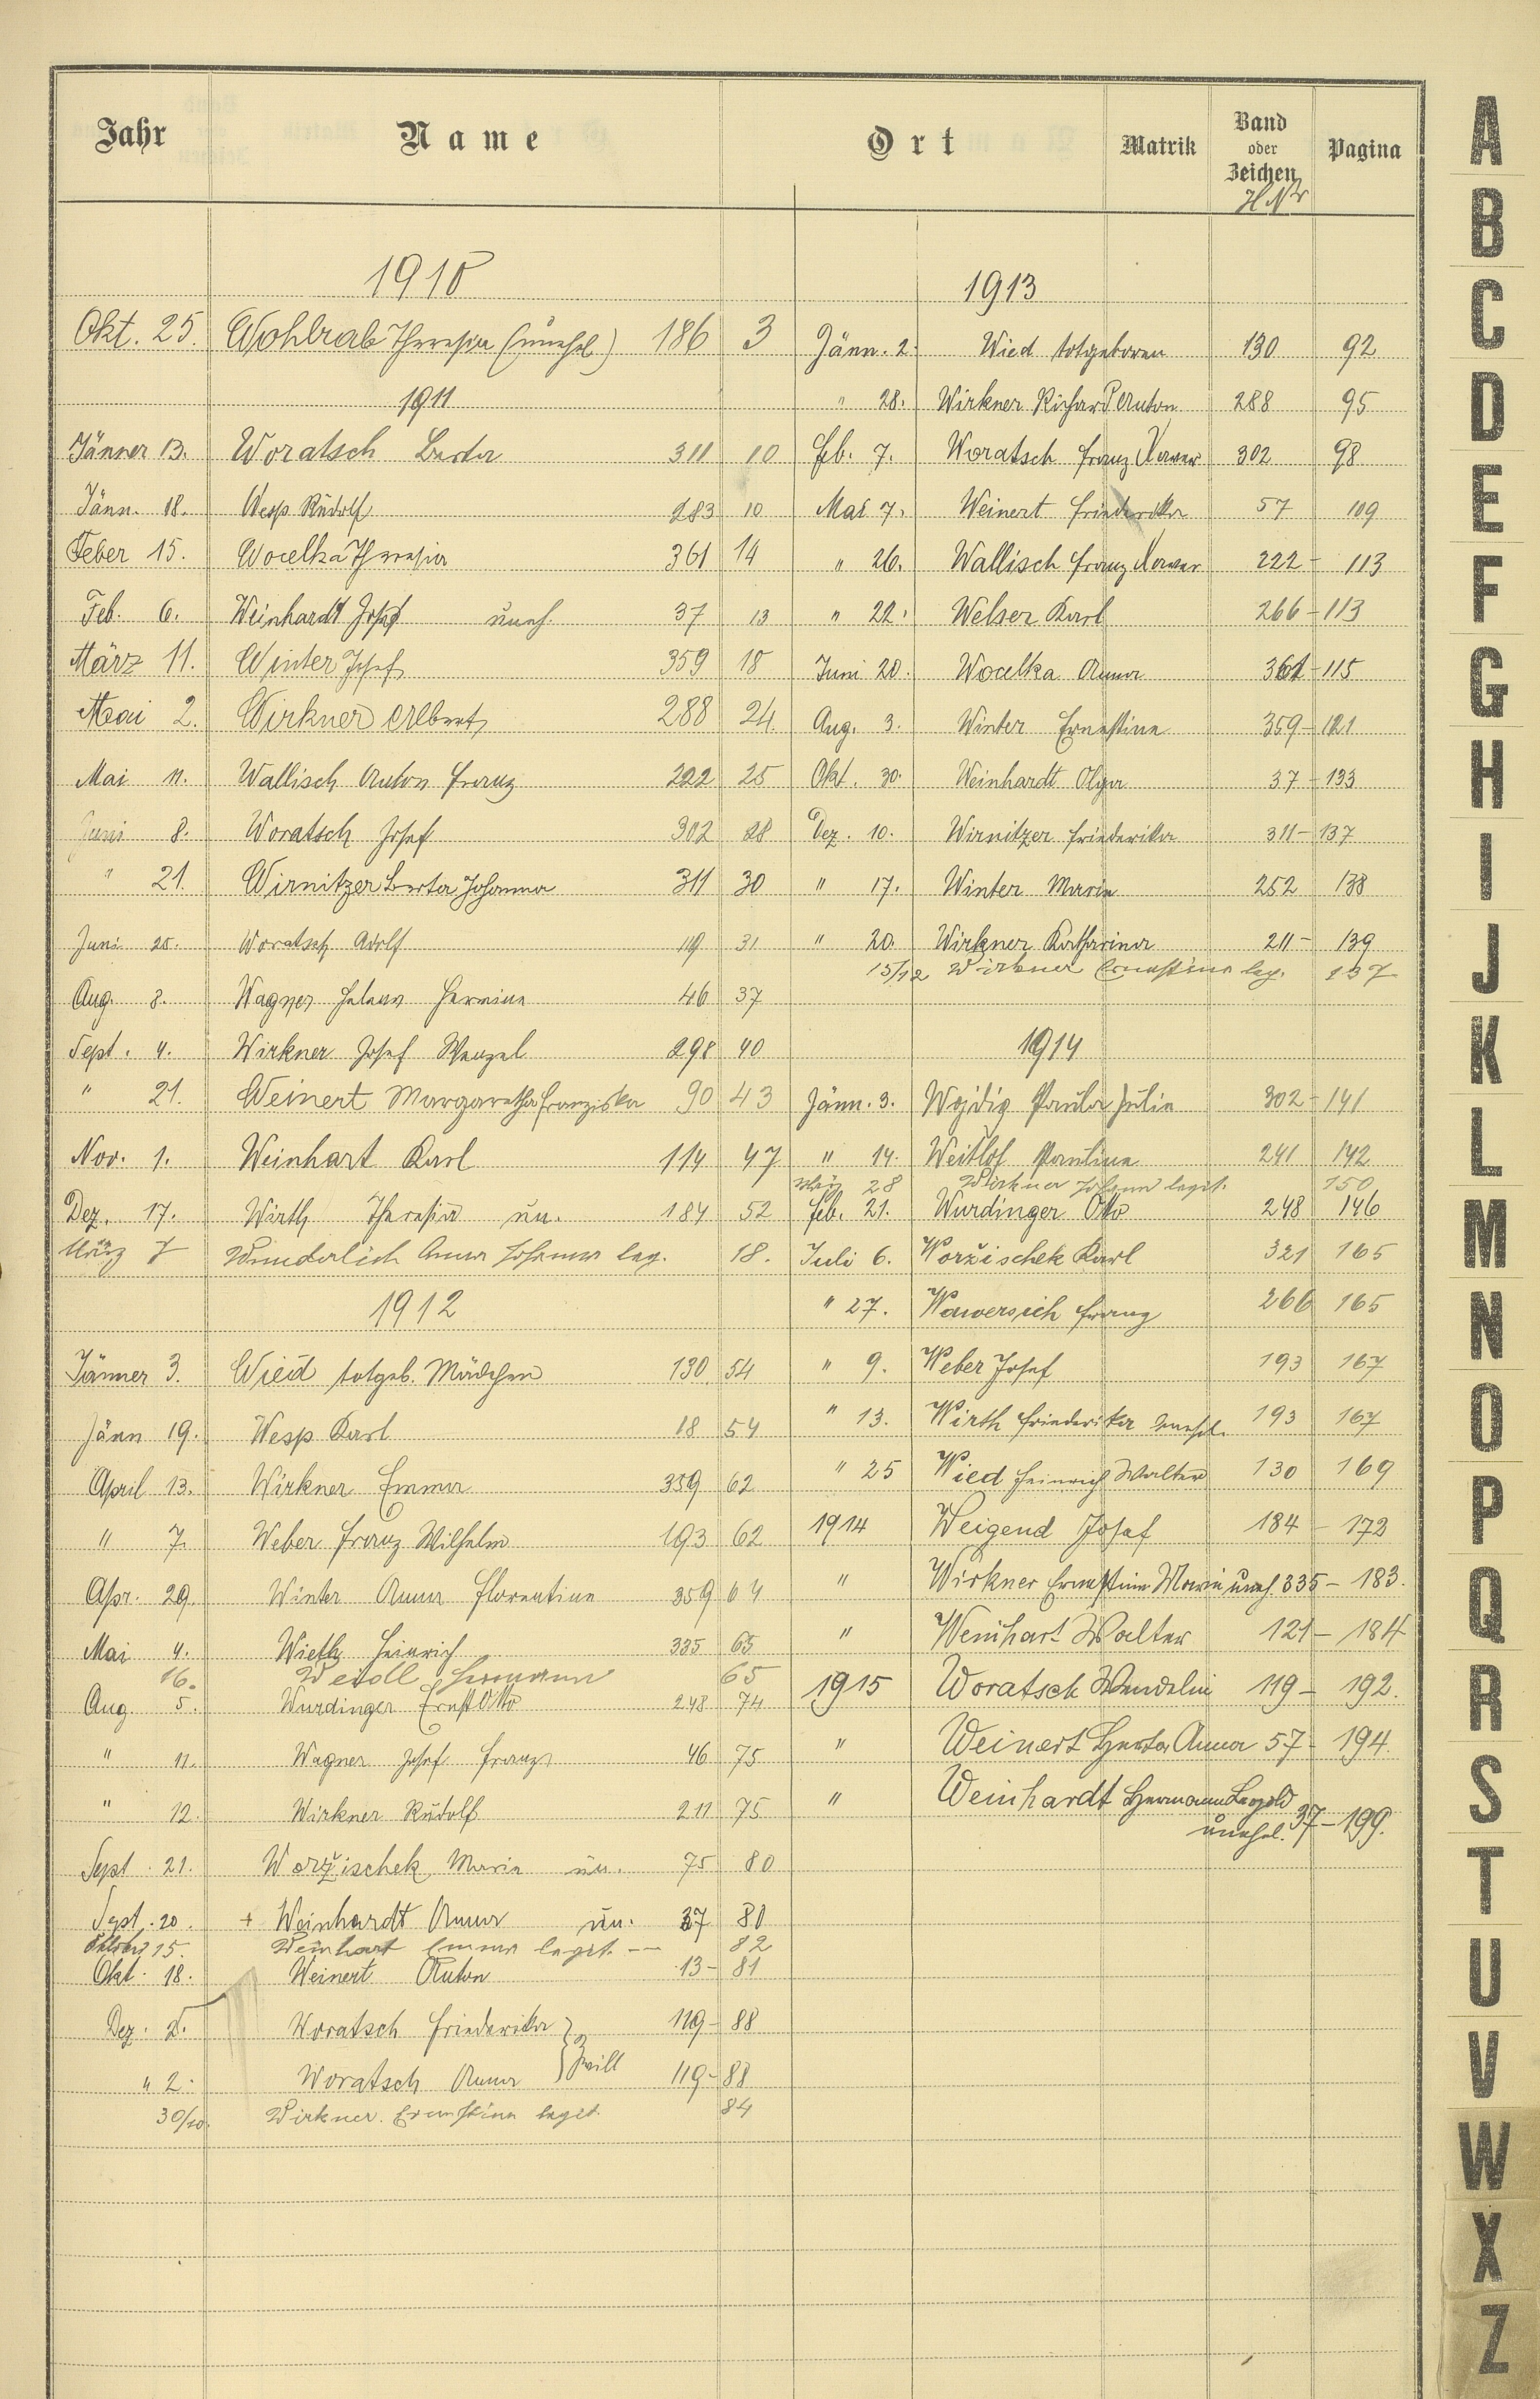 Jahr Name Ort Matrik Band oder Zeichen Pagina
H Nr
1910
Okt. 25. Wohlrab Theresia (unehel) 186 3
1911
Jänner 13. Woratsch Berta 311 10
Jänn. 18. Wesp Rudolf 283 10
Feber 15. Wocelka Theresia 361 14
Feb. 6. Weinhardt Josef uneh. 37 13
März 11. Winter Josef 359 18
Mai 2. Wirkner Albert 288 24.
Mai 11. Wallisch Anton Franz 222 25
Juni 8. Woratsch Josef 302 28
" 21. Wirnitzer Berta Johanna 311 30
Juni 25. Woratsch Adolf 119 31
Aug. 8. Wagner Helene Hermine 46 37
Sept. 4. Wirkner Josef Wenzel 298 40
" 21. Weinert Margaretha Franziska 90 43
Nov. 1. Weinhart Karl 114 47
Dez. 17. Wirth Theresia un. 184 52
März 7 Wunderlich Anna Johanna leg. 18.
1912
Jänner 3. Wied totgeb. Mädchen 130 54
Jänn 19. Wesp Karl 18 54
April 13. Wirkner Emma 359 62
" 7. Weber Franz Wilhelm 193 62
Apr. 29. Winter Anna Florentine 359 64
Mai 4. Wieth Heinrich 335 65
16. Weroll Hermann 65
Aug. 5. Wurdinger Ernst Otto 248 74
" 11. Wagner Josef Franz 46 75
" 12. Wirkner Rudolf 211 75
Sept. 21. Woržischek Marie un. 75 80
Sept. 20. + Weinhardt Anna un. 37 80
Oktober 15. Weinhart Emma legit. — 82
Okt. 18. Weinert Anton 13 - 81
Dez. 2. Woratsch Friederika 119 - 88
Zwill
" 2. Woratsch Anna 119 - 88
30/10. Wirkner Ernestine legit. 84
1913
Jänn. 2. Wied totgeboren 130 92
" 28. Wirkner Richard Anton 288 95
Feb. 7. Woratsch Franz Xaver 302 98
Mai 7. Weinert Friederika 57 109
" 26. Wallisch Franz Xaver 222 - 113
" 22. Welser Karl 266 - 113
Juni 20. Wocelka Anna 361 - 115
Aug. 3. Winter Ernestine 359 - 121
Okt. 30. Weinhardt Olga 37 - 133
Dez. 10. Wirnitzer Friederika 311 - 137
" 17. Winter Marie 252 138
" 20. Wirkner Katharina 211 - 139
15/12 Wirkner Ernestine leg. 137
1914
Jänn. 3. Wojdig Paula Julie 302 - 141
" 14. Weitlof Pauline 241 142
März 28 Wirkner Johann legit. 150
Feb. 21. Wurdinger Otto 248 146
Juli 6. Woržischek Karl 321 165
" 27. Wawersich Franz 266 165
" 9. Weber Josef 193 167
" 13. Wirth Friederika unehel. 193 167
" 25 Wied Heinrich Walter 130 169
1914 Weigend Josef 184 - 172
" Wirkner Ernestine Marie uneh. 335 - 183.
" Weinhart Walter 121 - 184
1915 Woratsch Wendelin 119 - 192.
" Weinert Herta Anna 57 - 194.
" Weinhardt Hermann Leopold
unehel. 37 - 199.
A
B
C
D
E
F
G
H
I
J
K
L
M
N
O
P
Q
R
S
T
U
V
W
X
Z